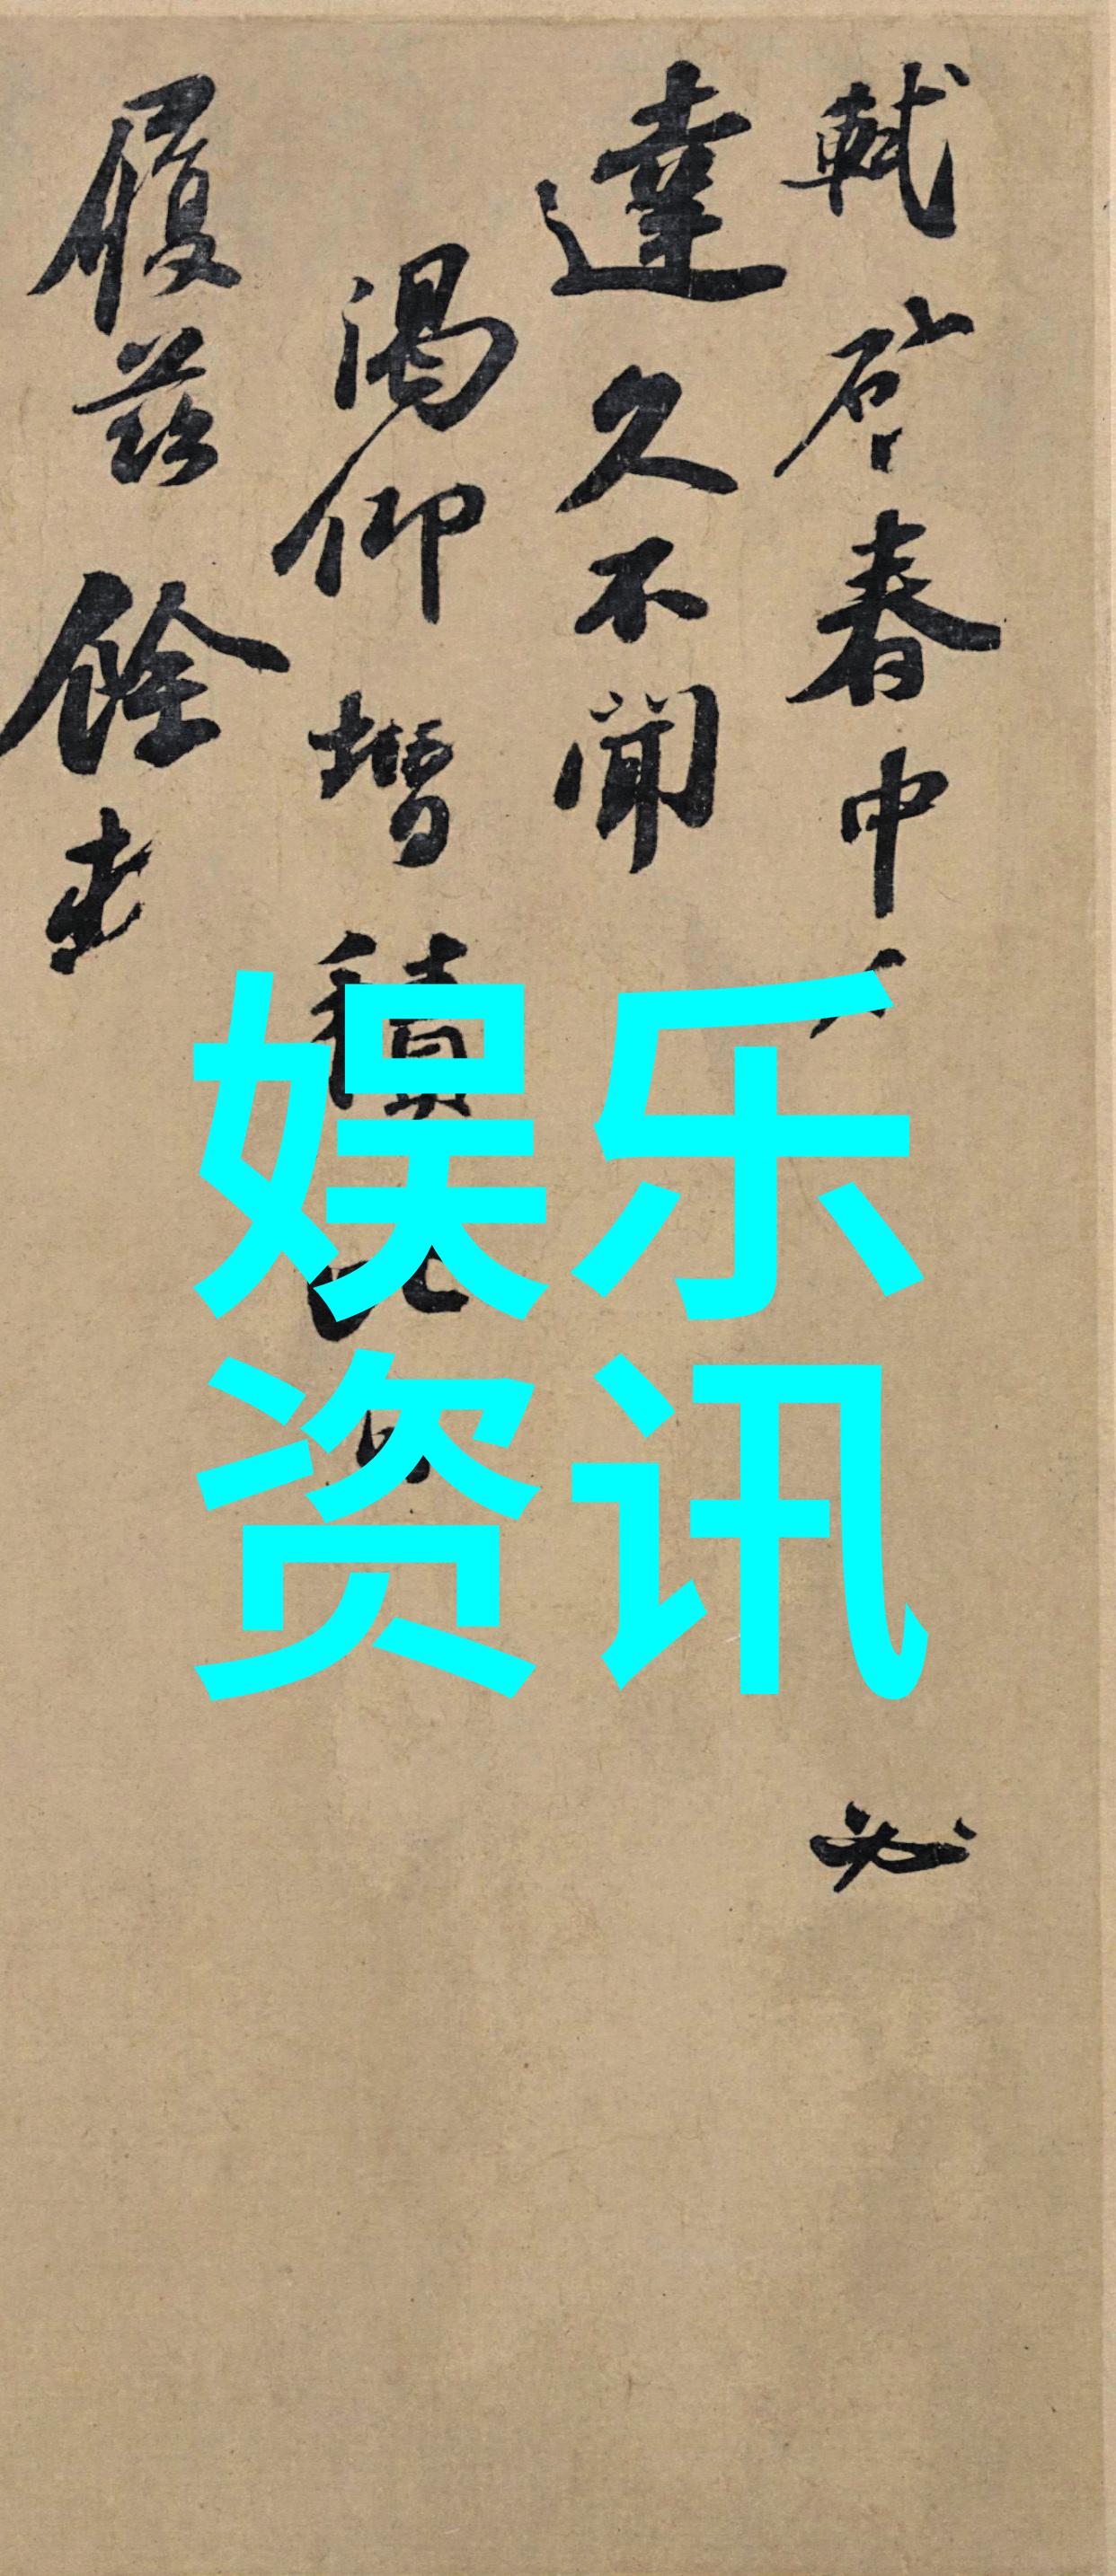 軾啓春中必
達久不聞
渴仰增積
履茲餘
娱乐
资讯